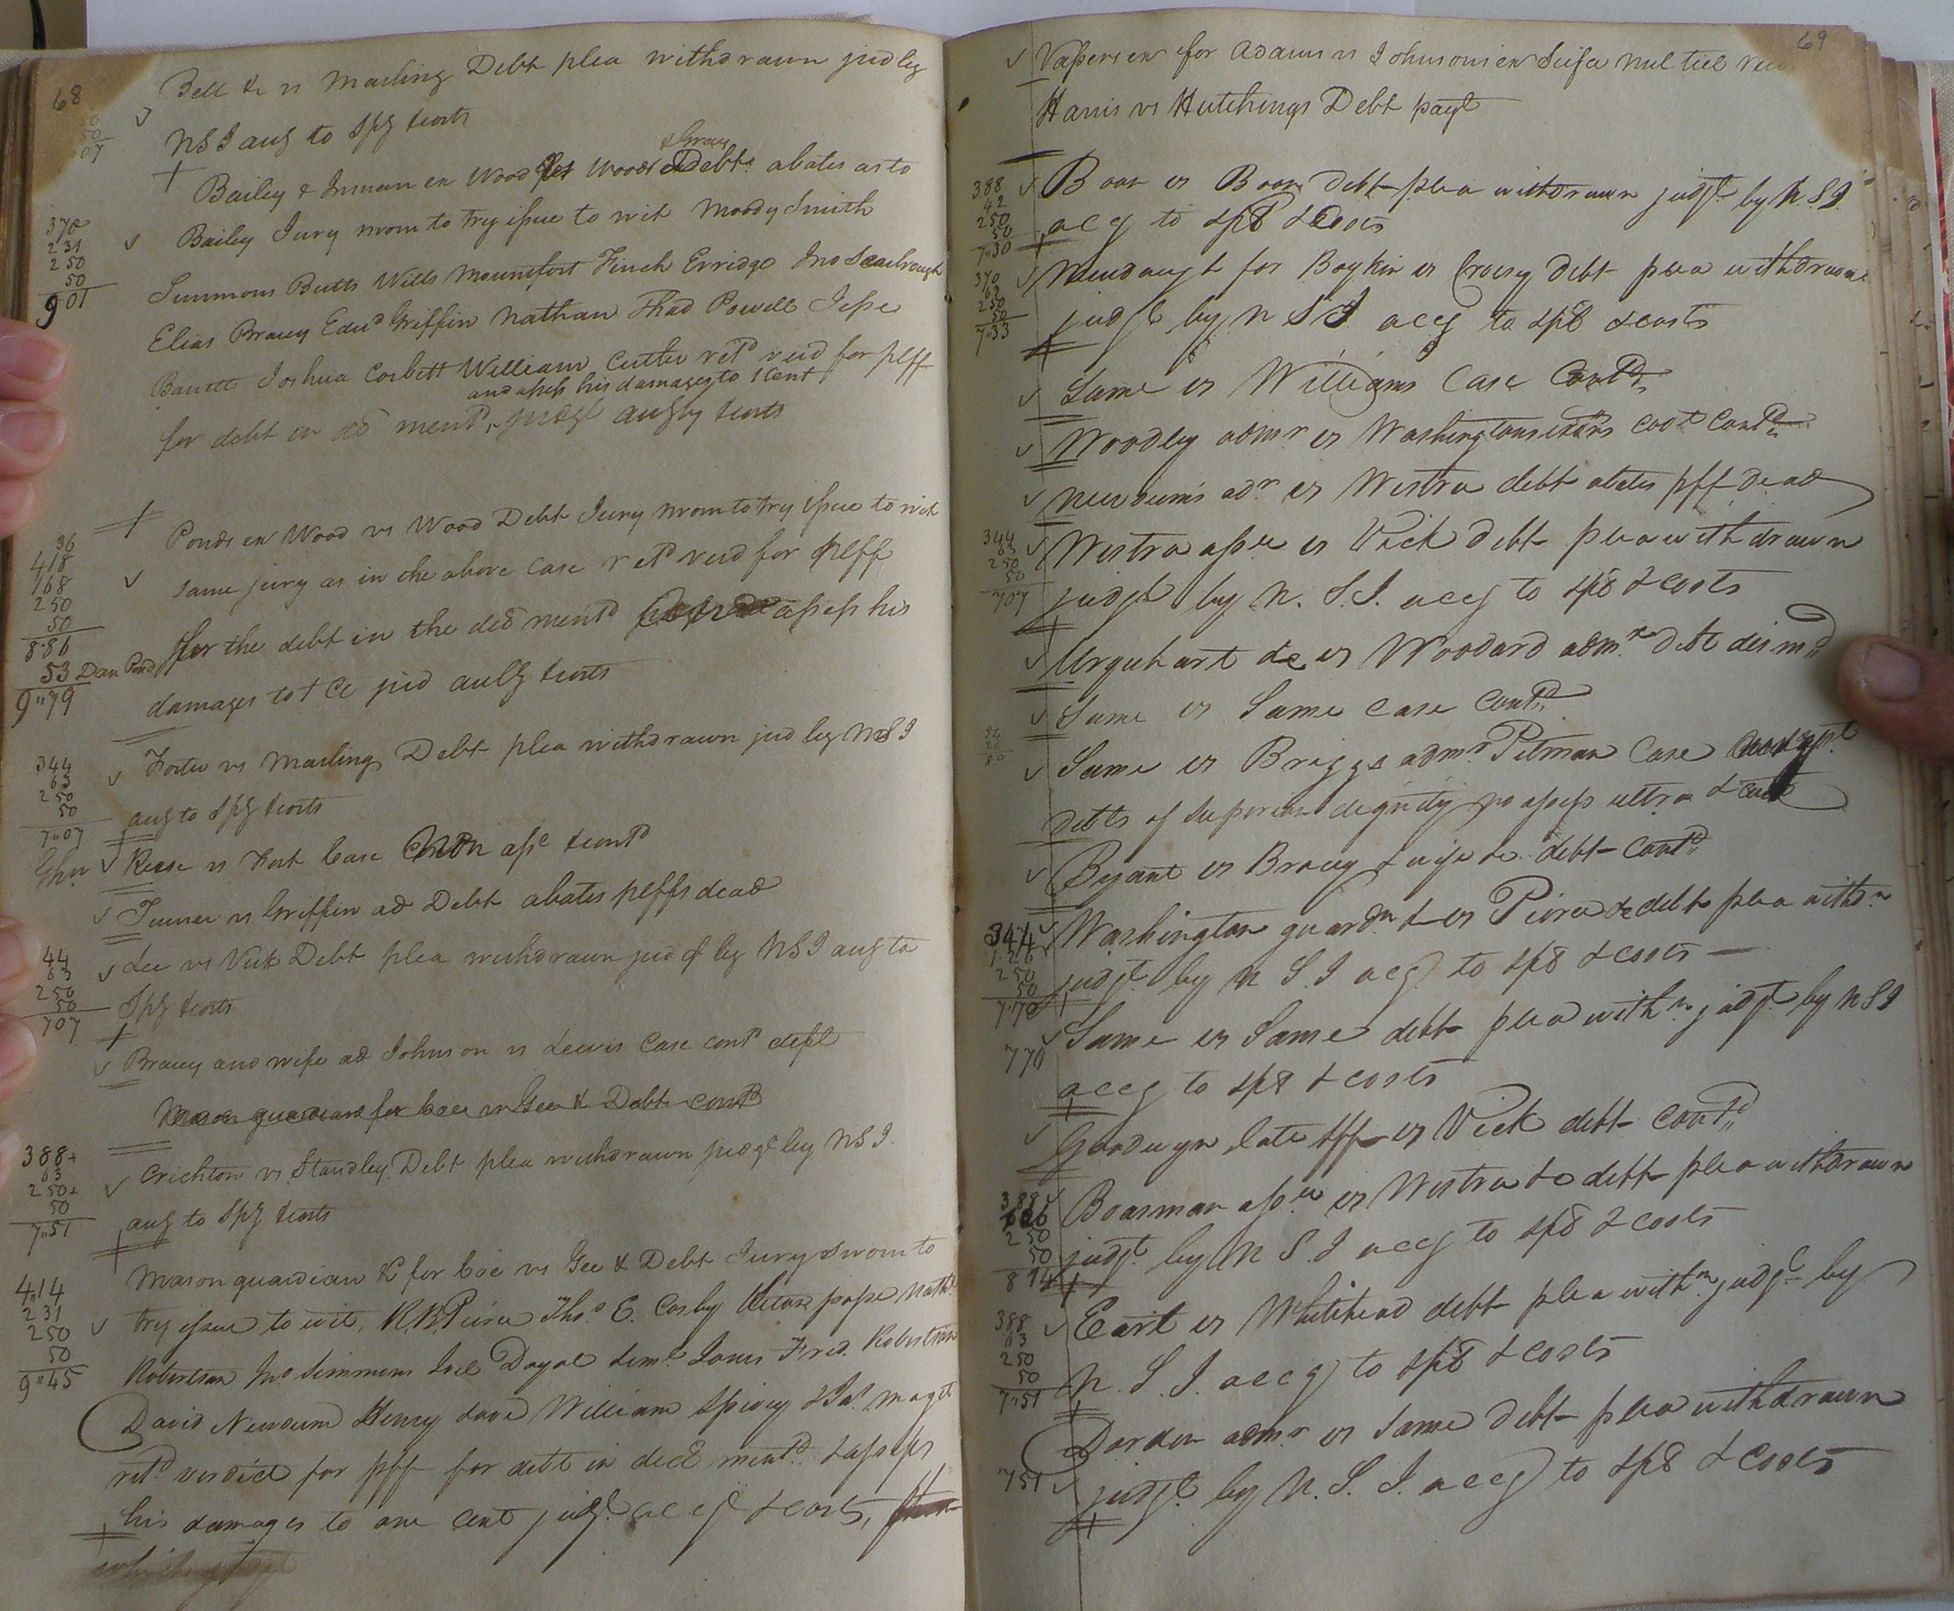 68
Bell &c vs Mailing Debt plea withdrawn judg
NSI accg to Spy & costs
Bailey & Inman ex Wood vs Woods & Gray Debt abates as to
370
231
250
50
9 01
Bailey Jury sworn to try issue to wit Moody Smith
Simmons Butts Wills Mountfort Finch Erridge Jno Scarbrough
Elias Bracy Edwd Griffin Nathan Thad Powell Jesse
Barrett Joshua Corbitt William Cutler retd verd for plff
and assess his damages to 1 Cent
for debt in decl mentd judgt accg & costs
Ponds ex Wood vs Wood Debt Jury sworn to try issue to wit
36
418
168
250
50
8.86
53 Dan Pond
9"79
same jury as in the above case retd verd for plff
for the debt in the decl mentd assess his
damages to 1 Ct jud accg & costs
344
63
250
50
7"07
Foster vs Mailing Debt plea withdrawn jud by NSI
accg to Spy & costs
Reese vs Fort Case assd & contd
Turner vs Griffin ad Debt abates plffs dead
44
63
250
50
707
Lee vs Vick Debt plea withdrawn judgt by NSI accg to
Spy & costs
Bracy and wife ad Johnson vs Lewis Case contd
Mason guardian for Coe vs Gee & Debt contd
388
63
250
50
7"51
Crichton vs Standley Debt plea withdrawn judgt by NSI.
accg to Spy & costs
4.14
231
250
50
9"45
Mason guardian &c for Coe vs Gee & Debt Jury sworn to
try issue to wit, R.B. Pierce Thos. E. Cosby pope Nathl
Robertson Jno Simmons Joel Doyal Saml. Jones Fred. Robertson
David Newsum Henry William Spivey & Jas.
retd verdict for pff for debt in decl mentd & assesses
his damages to one cent judgt. accg & costs,
69
Vassers ex for Adams vs Johnsons ex Scifa nul tiel
Harris vs Hutchings Debt payt
388
42
250
50
7.30
Boon vs Boon Debt plea withdrawn judgt by N.S.I.
accg to Sps & Costs
370
63
250
50
7"33
for Boykin vs Crocey Debt plea withdrawn
judgt by N S I accg to sps & costs
Same vs Williams Case Contd
Woodley admr vs Washingtons Case Contd
Newsum's adr vs Westra debt abates pff dead
344
63
250
50
707
Westra assee vs Vick debt plea withdrawn
judgt by N. S.I. accg to sps & costs
Urquhart &c vs Woodard admr debt dismd
Same vs Same Case Contd
Same vs Briggs admr Pitman Case
debts of superior dignity no assets ultra & contd
Bryant vs Bracey & wife &c debt Contd
344
1.26
250
50
7"70
Washington guardn & vs Pierce &c debt plea withdn
judgt by N S.I accg to sps & costs —
770
Same vs Same debt plea withn. judgt by N S I
accg to sps & costs
Goodwyn late sff vs Vick debt Contd
388
126
250
50
8 14
Boarman assee vs Westra &c debt plea withdrawn
judgt. by N S I accg to sps & costs
388
63
250
50
7"51
East vs Whitehead debt plea withn judgt by
N. S. I. accg to sps & costs
Darden admr vs Same debt plea withdrawn
751
judgt by N. S. I. accg to sps & costs